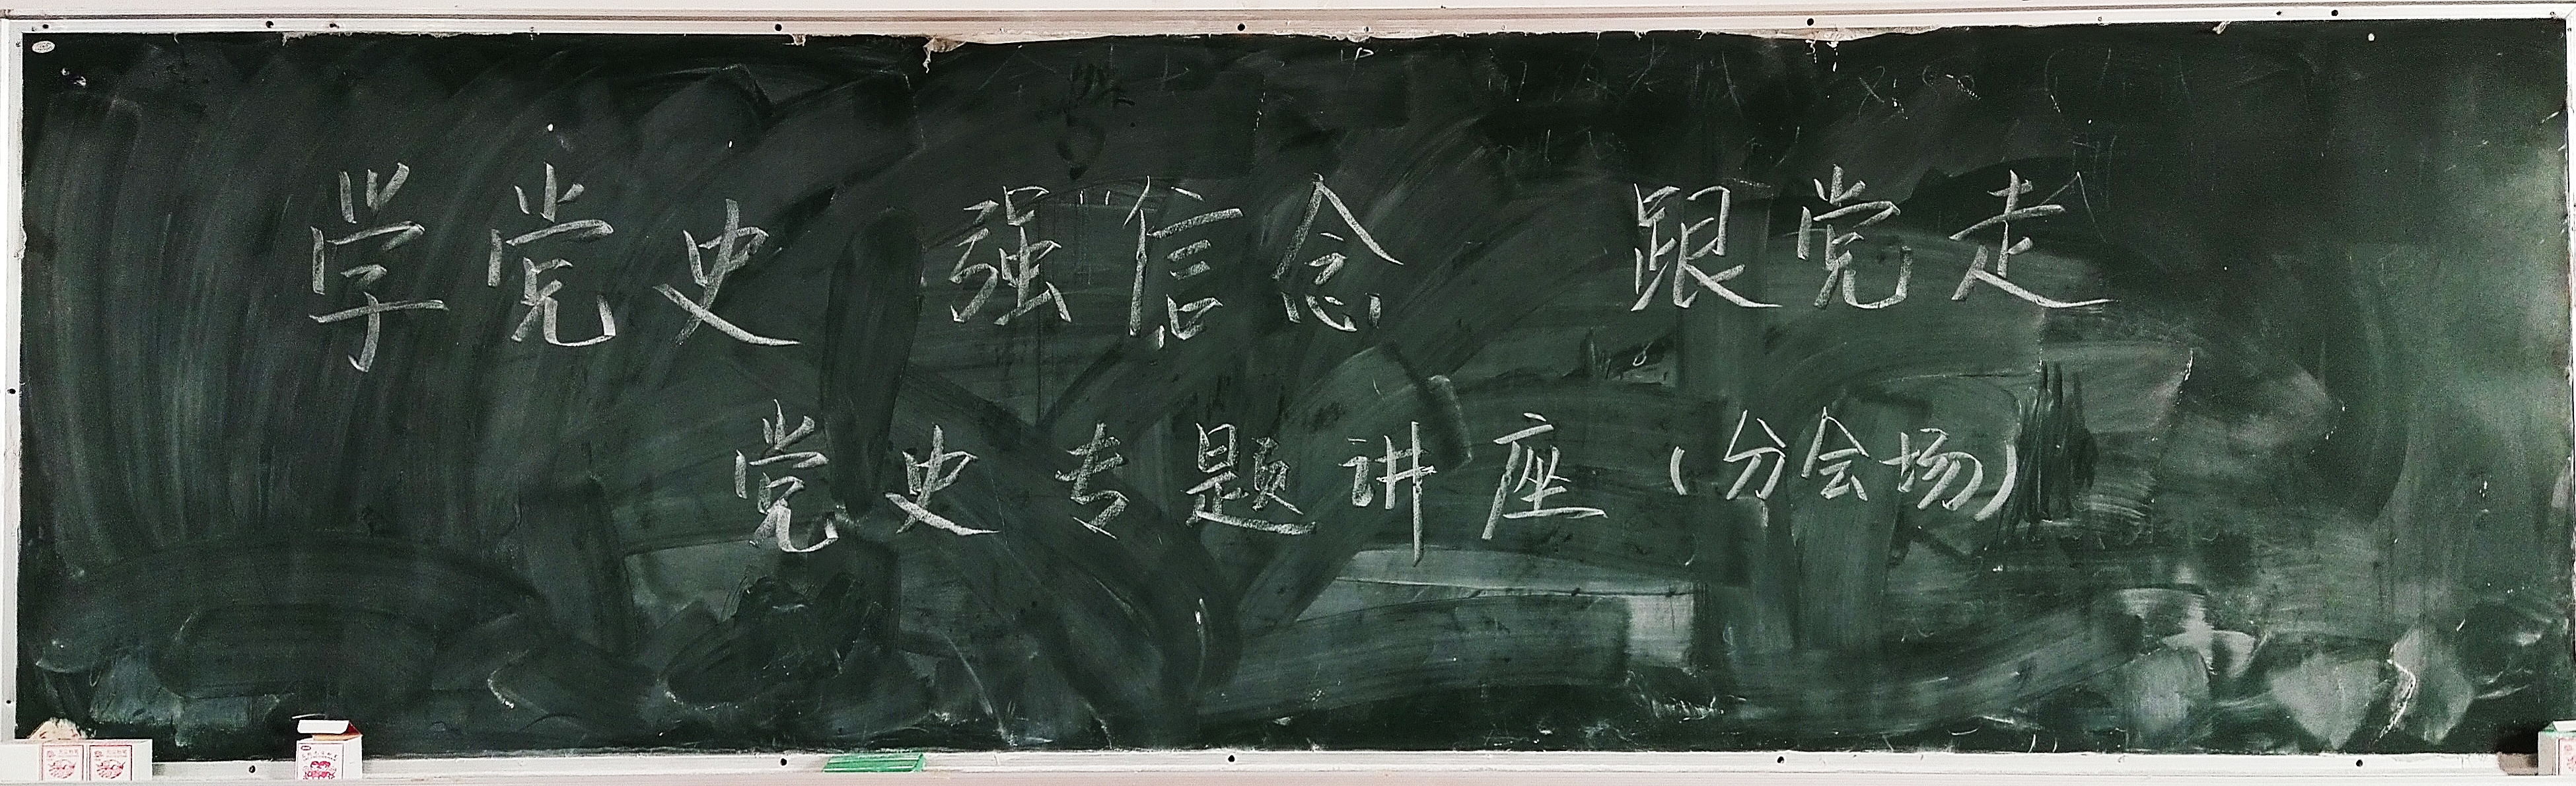 学党史 强信念 跟党走
党史专题讲座(分会场)